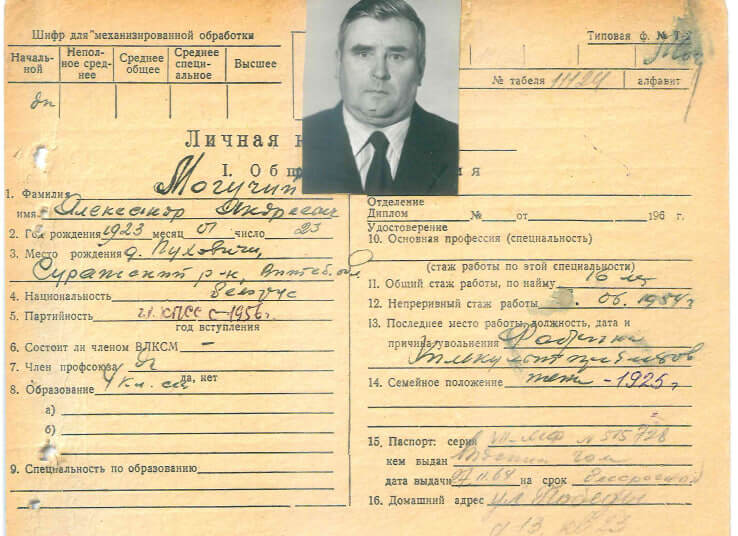 Шифр для механизированной обработки
Типовая ф. № Т-2
Началь-ной
Непол-ное сред-нее
Среднее общее
Среднее специ-альное
Высшее
№ табеля 11124
алфавит
Личная
I. Общ
1. Фамилия Могучий
имя Александр Андреевич
2. Год рождения 1923 месяц 01 число 23
3. Место рождения д. Пуховичи,
Суражский р-н, Витеб. обл
4. Национальность белорус
5. Партийность чл. КПСС с-1956г.
год вступления
6. Состоит ли членом ВЛКСМ —
7. Член профсоюза да
да, нет
8. Образование 4 кл.
а)
б)
9. Специальность по образованию
Отделение
Диплом № от 196 г.
Удостоверение
10. Основная профессия (специальность)
(стаж работы по этой специальности)
11. Общий стаж работы, по найму 16 лет
12. Непрерывный стаж работы 06. 1954г
13. Последнее место работы, должность, дата и
причина увольнения Фабрика
14. Семейное положение жен -1925г
15. Паспорт: серия № 515728
кем выдан
дата выдачи 11.64 на срок бессрочный
16. Домашний адрес ул. Победы
д 13, кв 23